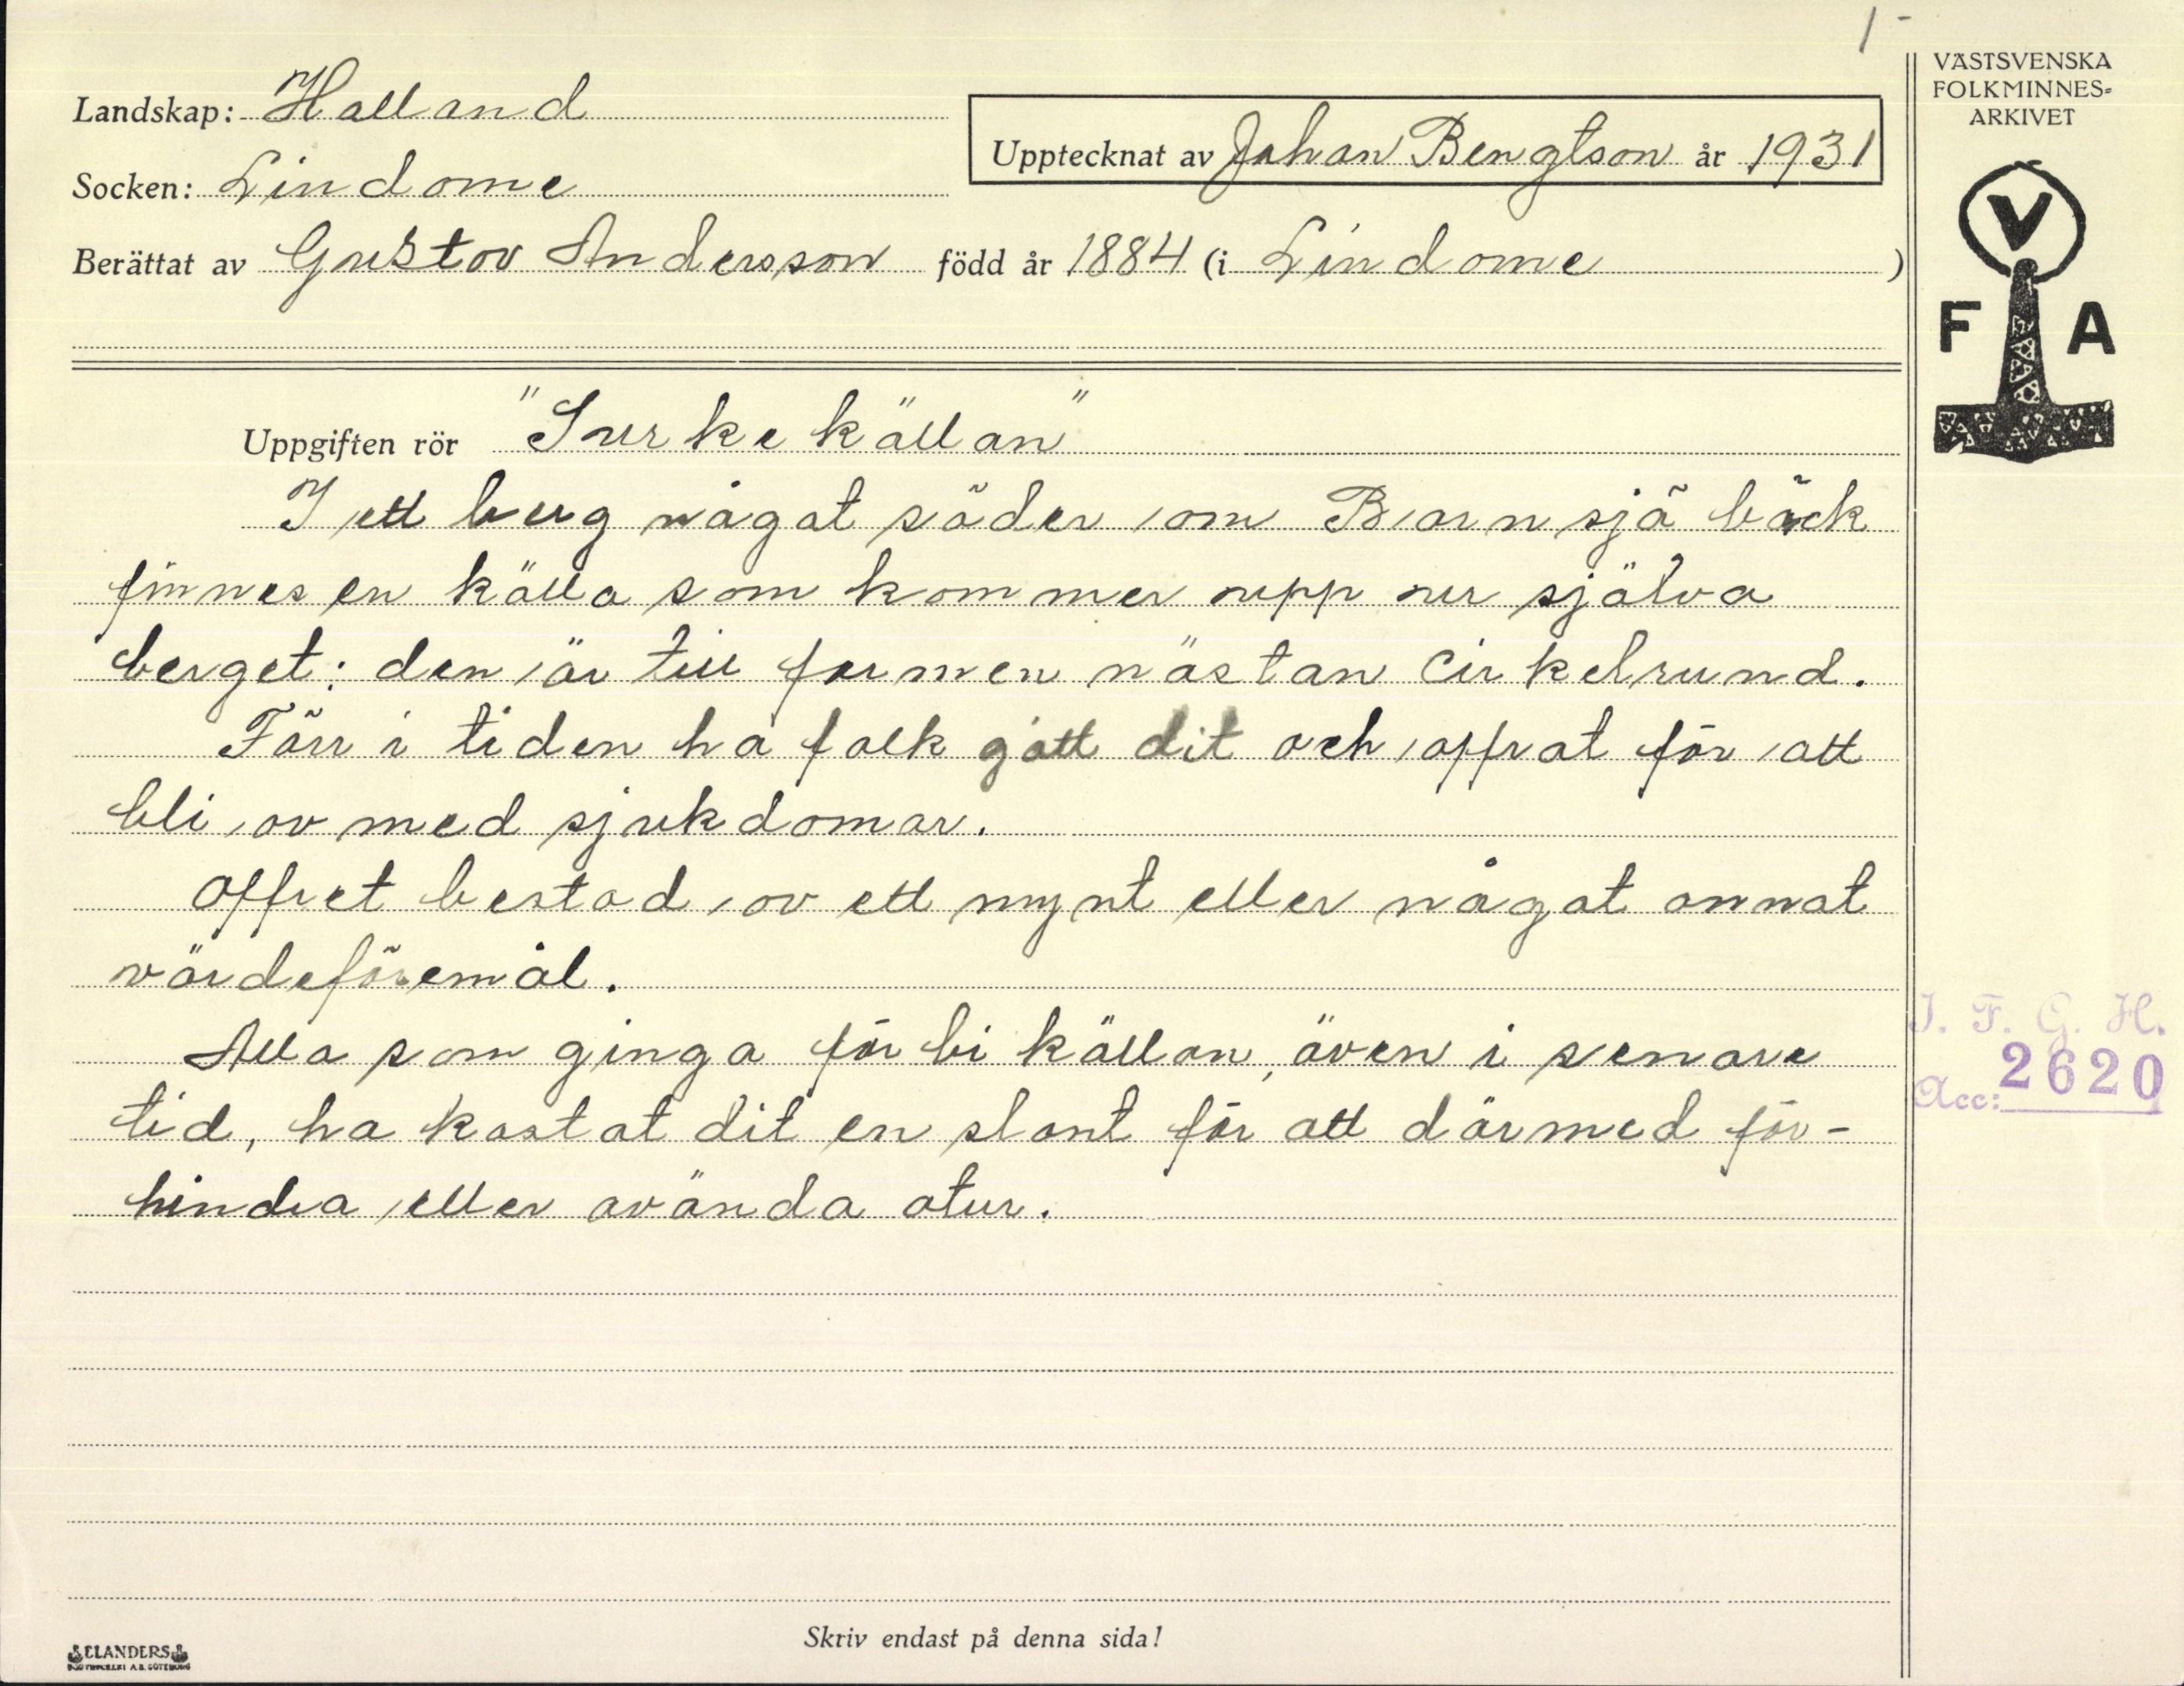 1-
VÄSTSVENSKA
FOLKMINNES-
ARKIVET
Landskap: Halland
Upptecknat av Johan Bengtson år 1931
Socken: Lindome
Berättat av Gustav Andersson född år 1884 (i Lindome )
V
F A
Uppgiften rör "Surkekällan"
I ett berg något söder om Barnsjö bäck
finnes en källa som kommer upp ur själva
berget: den är till formen nästan cirkelrund.
Förr i tiden ha folk gått dit och offrat för att
bli av med sjukdomar.
Offret bestod av ett mynt eller något annat
värdeföremål.
Alla som gingo förbi källan, även i senare
tid, ha kastat dit en slant för att därmed för-
hindra eller avända otur.
I. F. G. H.
Acc: 2620
Skriv endast på denna sida!
ELANDERS
BOKTRYCKERI A.B. GÖTEBORG